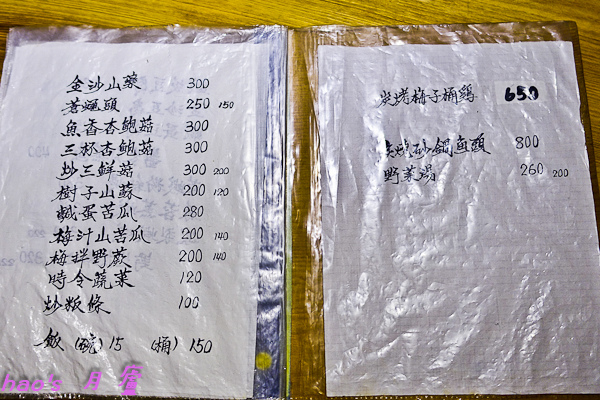 金沙山藥 300
蒼蠅頭 250 150
魚香杏鮑菇 300
三杯杏鮑菇 300
炒三鮮菇 300 200
樹子山蘇 200 120
鹹蛋苦瓜 280
梅汁山苦瓜 200 140
梅拌野蕨 200 140
時令蔬菜 120
炒粄條 100
飯 (碗) 15 (桶) 150
炭烤梅子桶鷄 650
炭燒砂鍋魚頭 800
野菜湯 260 200
hao's 月眉